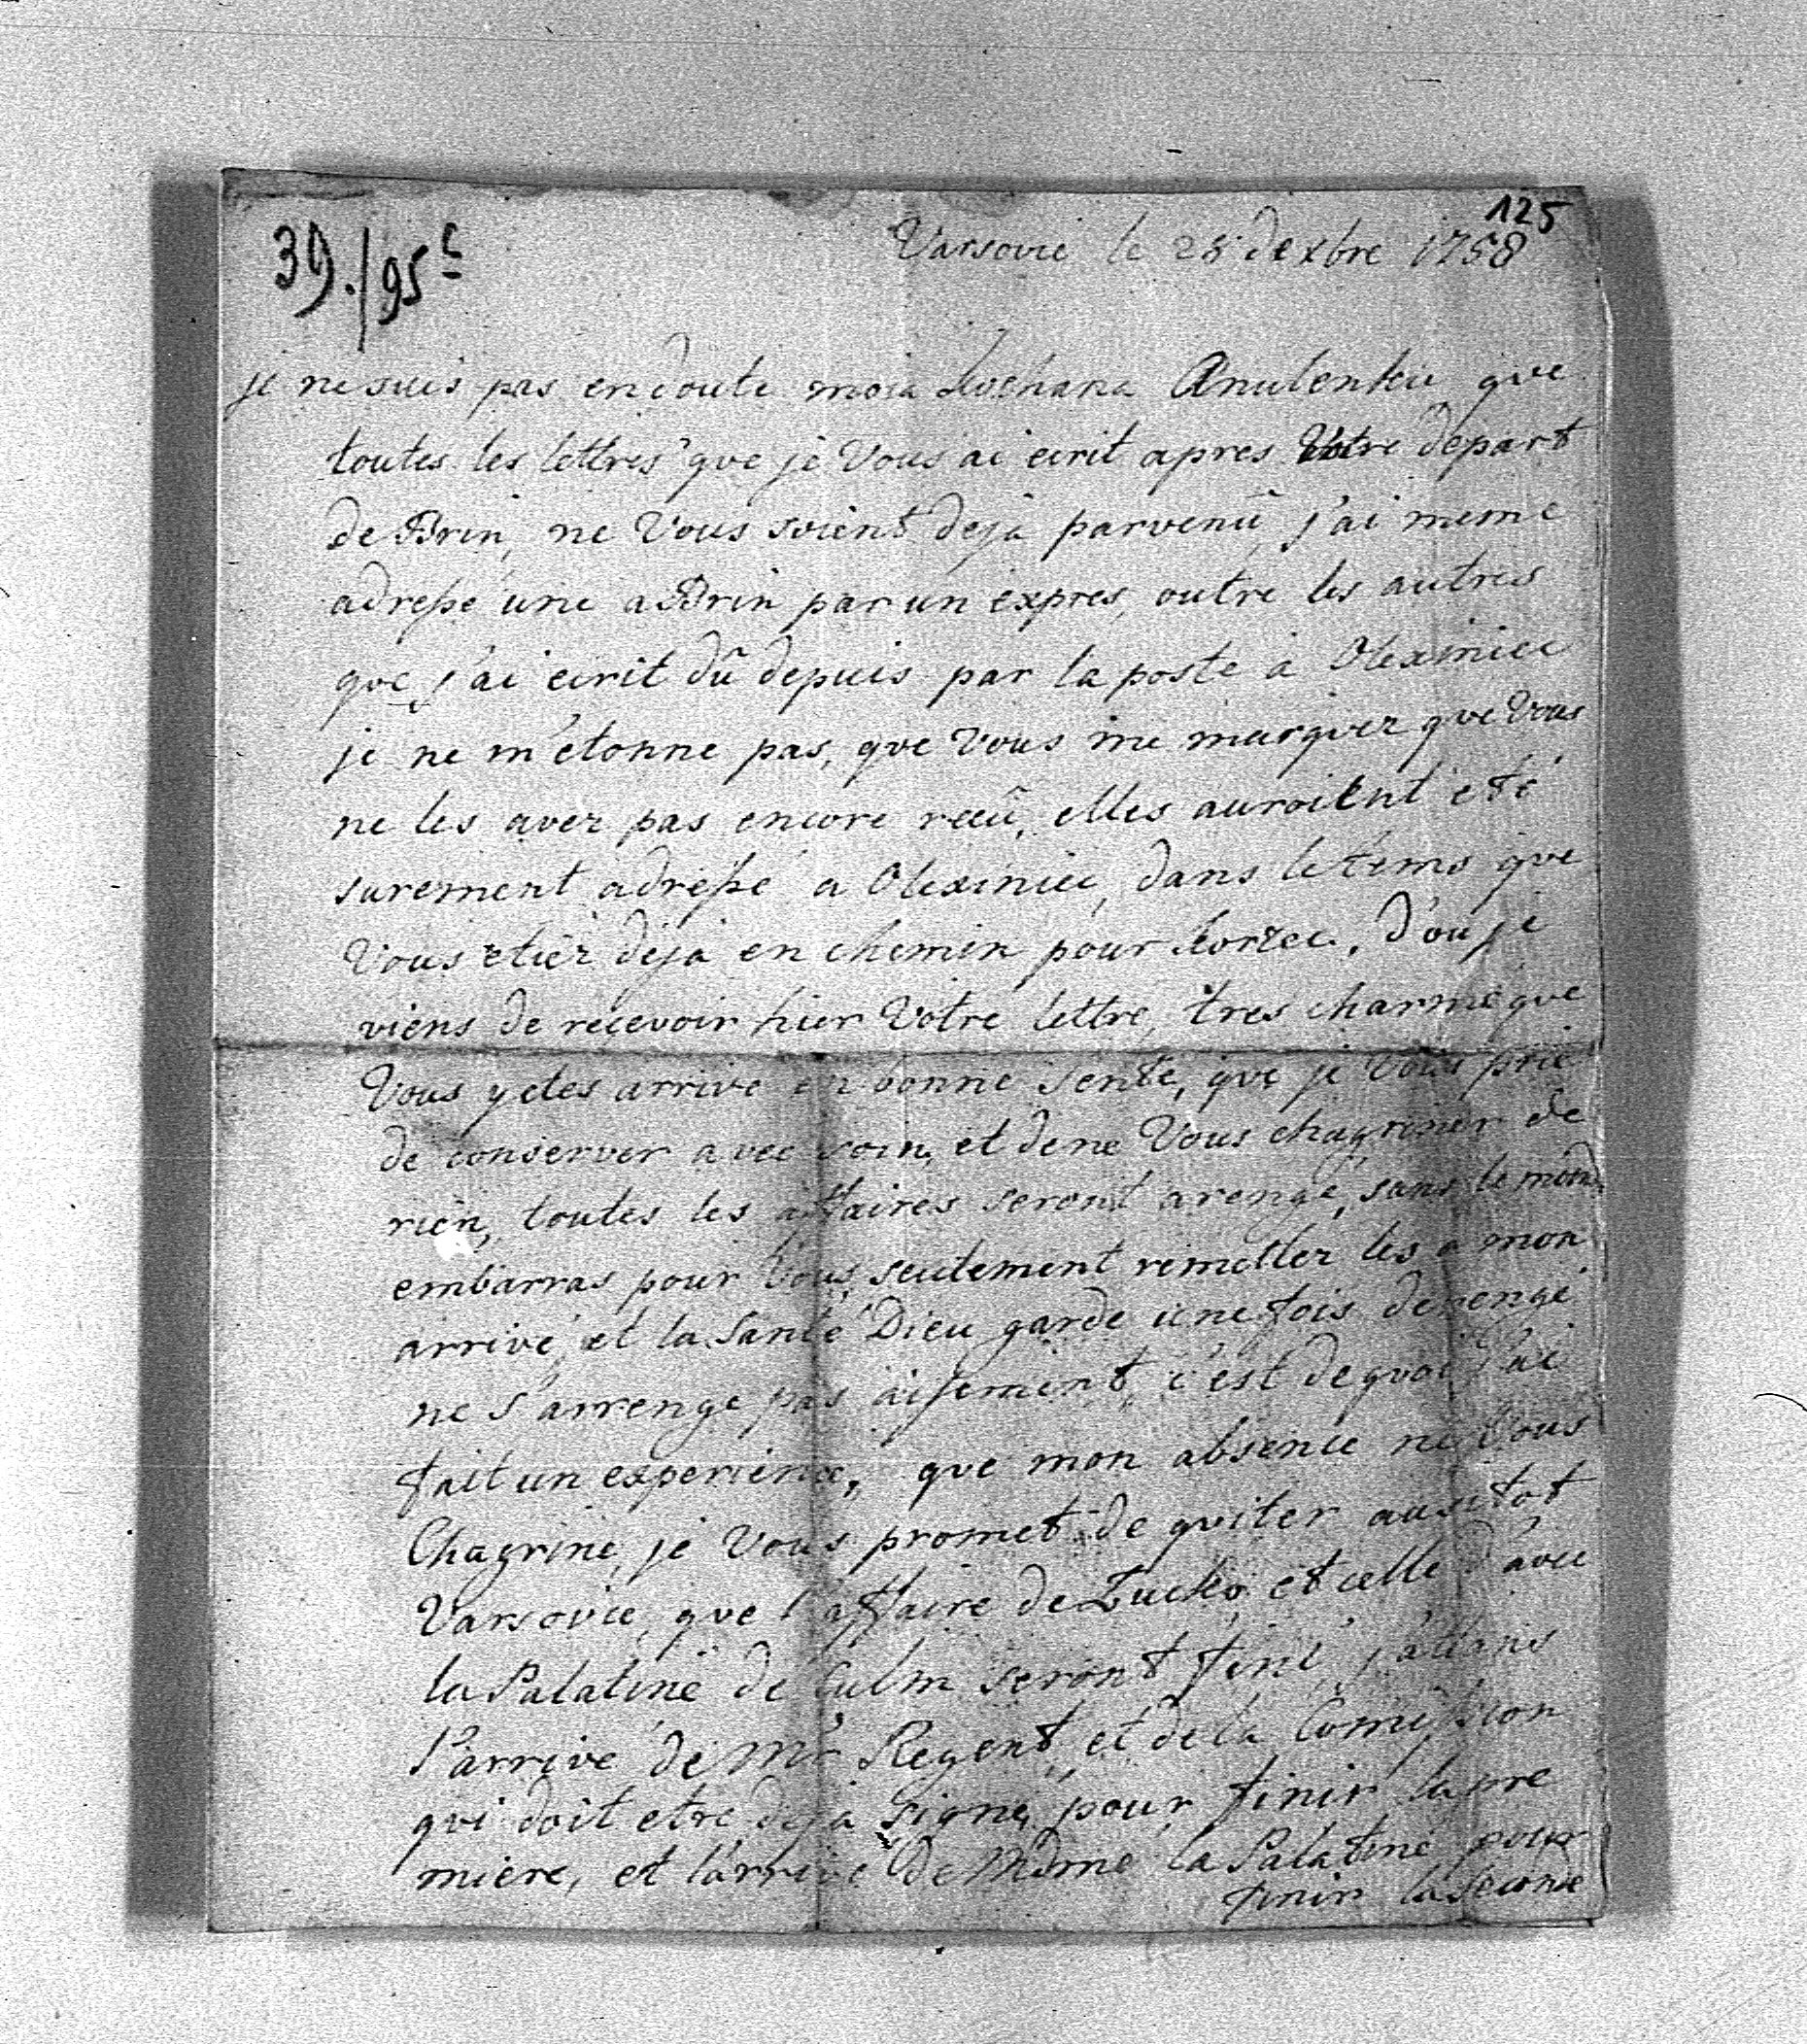 125
39./95c
Varsovie le 28 dexbre 1758
je ne suis pas en doute moia kochana Anulenku que
toutes les lettres que je Vous ai ecrit apres Votre depart
de Brin, ne Vous soient deja parvenû, j'ai meme
adreßé une a Brin par un expres, outre les autres
que j'ai ecrit dû depuis par la poste à Olexiniec
je ne m'etonne pas, que Vous me marquez que Vous
ne les avéz pas encore recû, elles auroient été
surement adreßé a Olexiniec, dans le tems que
Vous etiéz deja en chemin pour Korzec, d'ou je
viens de reçevoir hier Votre lettre, tres charmé que
Vous y etes arrivé en bonne senté, que je Vous prie
de conserver avec soin, et de ne Vous chagriner de
rien, toutes les affaires seront arengé, sans le moind
embarras pour Vous seulement remettez les a mon
arrivé, et la Santé Dieu garde une fois derengé
ne s'arrenge pas aisement, c'est de quoi j'ai
fait un experience, que mon absence ne Vous
Chagrine, je Vous promet de quiter ausitot
Varsovie, que l'affaire de Tucko et celle d'avec
la Palatine de Culm seront fini, j'attans
l'arrivé de Mr Regent, et de la Comission
qui doit etre deja signé, pour finir la pre
miere, et l'arrivé de Mdme la Palatine pour
finir la seconde